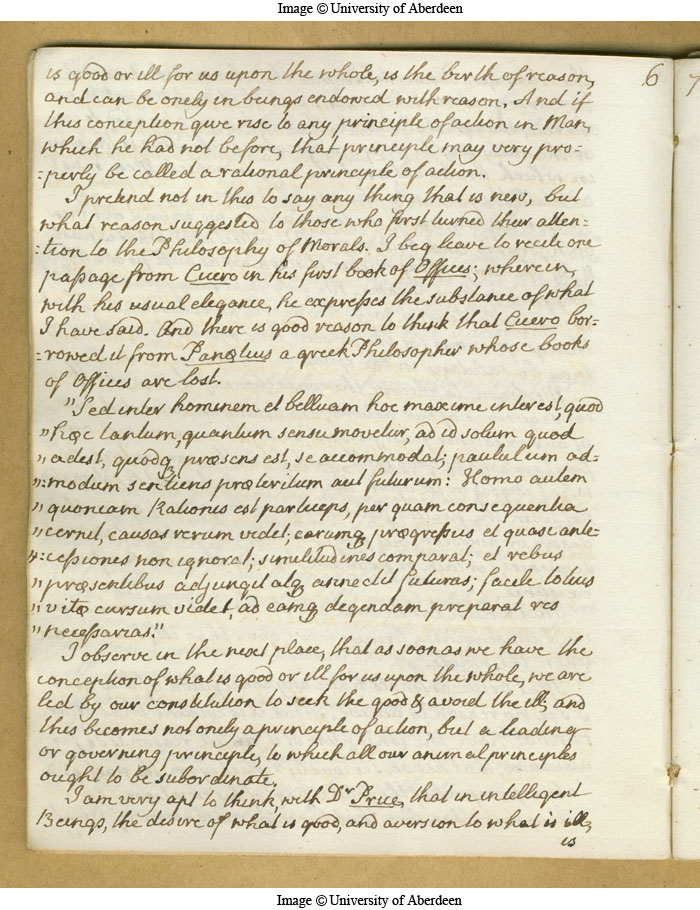 Image © University of Aberdeen
6
is good or ill for us upon the whole, is the birth of reason,
and can be onely in beings endowed with reason. And if
this conception give rise to any principle of action in Man,
which he had not before, that principle may very pro=
=perly be called a rational principle of action.
I pretend not in this to say any thing that is new, but
what reason suggested to those who first turned their atten=
=tion to the Philosophy of Morals. I beg leave to recite one
passage from Cicero in his first book of Offices; wherein,
with his usual elegance, he expresses the substance of what
I have said. And there is good reason to think that Cicero bor=
=rowed it from Panætius a greek Philosopher whose books
of Offices are lost.
"Sed inter hominem et belluam hoc maxime interest, quod
"hæc tantum, quantum sensu movetur, ad id solum quod
"adest, quodq præsens est, se accommodat; paululum ad=
"=modum sentiens præteritum aut futurum: Homo autem
"quoniam Rationis est particeps, per quam consequentia
"cernit, causas rerum videt; earumq prægressus et quasi ante=
"=cessiones non ignorat; similitudines comparat; et rebus
"præsentibus adjungit atq annectit futuras; facile totius
"vitæ cursum videt, ad eamq degendam preparat res
"necessarias."
I observe in the next place, that as soon as we have the
conception of what is good or ill for us upon the whole, we are
led by our constitution to seek the good & avoid the ill, and
this becomes not onely a principle of action, but a leading
or governing principle, to which all our animal principles
ought to be subordinate.
I am very apt to think, with Dr Price, that in intelligent
Beings, the desire of what is good, and aversion to what is ill,
is
Image © University of Aberdeen